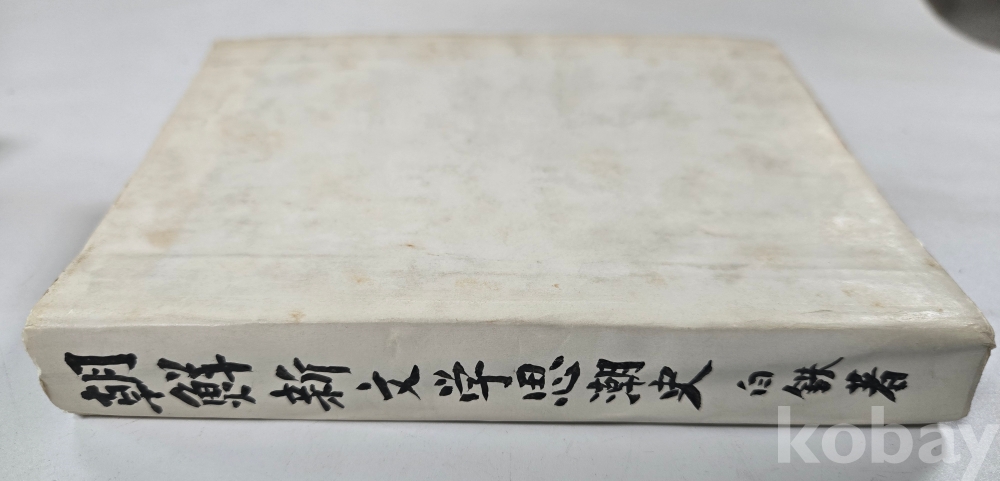 朝鮮新文学思潮史 白鉄著
kobay